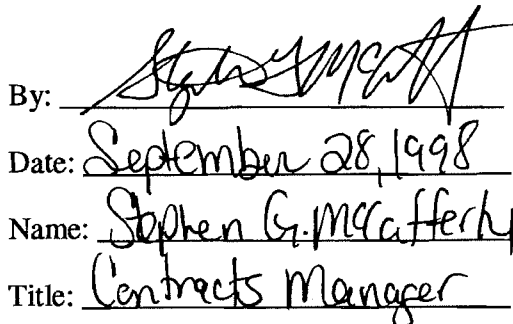 By:
Date: September 28, 1998
Name: Stephen G. McCafferty
Title: Contracts Manager